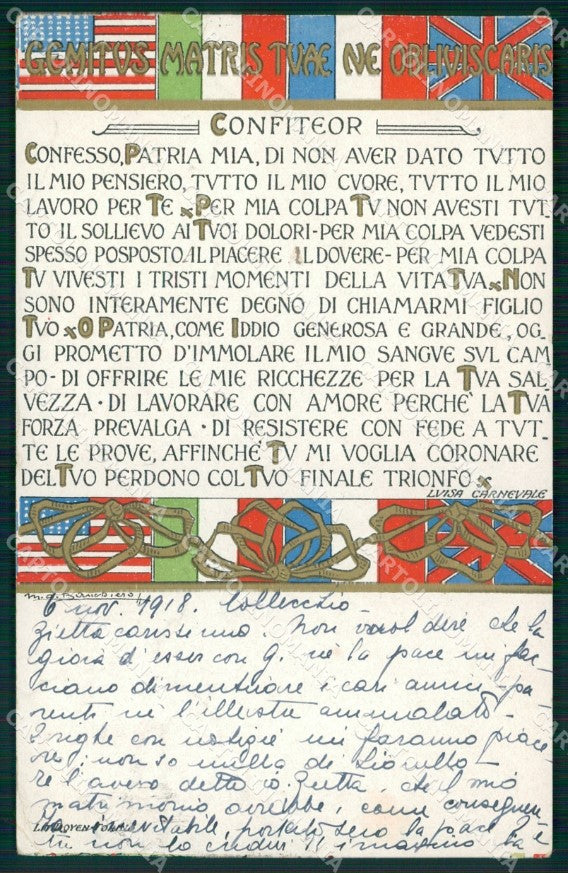 GEMITVS MATRIS TVAE NE OBLIVISCARIS
CONFITEOR
CONFESSO, PATRIA MIA, DI NON AVER DATO TVTTO
IL MIO PENSIERO, TVTTO IL MIO CVORE, TVTTO IL MIO
LAVORO PER TE × PER MIA COLPA TV NON AVESTI TVT-
TO IL SOLLIEVO AI TVOI DOLORI - PER MIA COLPA VEDESTI
SPESSO POSPOSTO IL PIACERE IL DOVERE - PER MIA COLPA
TV VIVESTI I TRISTI MOMENTI DELLA VITA TVA × NON
SONO INTERAMENTE DEGNO DI CHIAMARMI FIGLIO
TVO × O PATRIA, COME IDDIO GENEROSA E GRANDE, OG-
GI PROMETTO D'IMMOLARE IL MIO SANGVE SVL CAM
PO - DI OFFRIRE LE MIE RICCHEZZE PER LA TVA SAL
VEZZA · DI LAVORARE CON AMORE PERCHÈ LA TVA
FORZA PREVALGA · DI RESISTERE CON FEDE A TVT-
TE LE PROVE, AFFINCHÈ TV MI VOGLIA CORONARE
DEL TVO PERDONO COL TVO FINALE TRIONFO ×
LVISA CARNEVALE
6 nov. 1918. Collecchio
Zietta carissima. Non vuol dire che la
gioia d'esser con G. nè la pace mi fac-
ciano dimenticare i cari amici - pa-
renti nè l'illustre ammalato -
righe con notizie mi faranno piace
re; non so nulla de
re l'avevo detto io Zietta, che il mio
matrimonio avrebbe, come conseguen
za inevitabile, portato la pace
non lo credevi
CARTOLINOMANIA